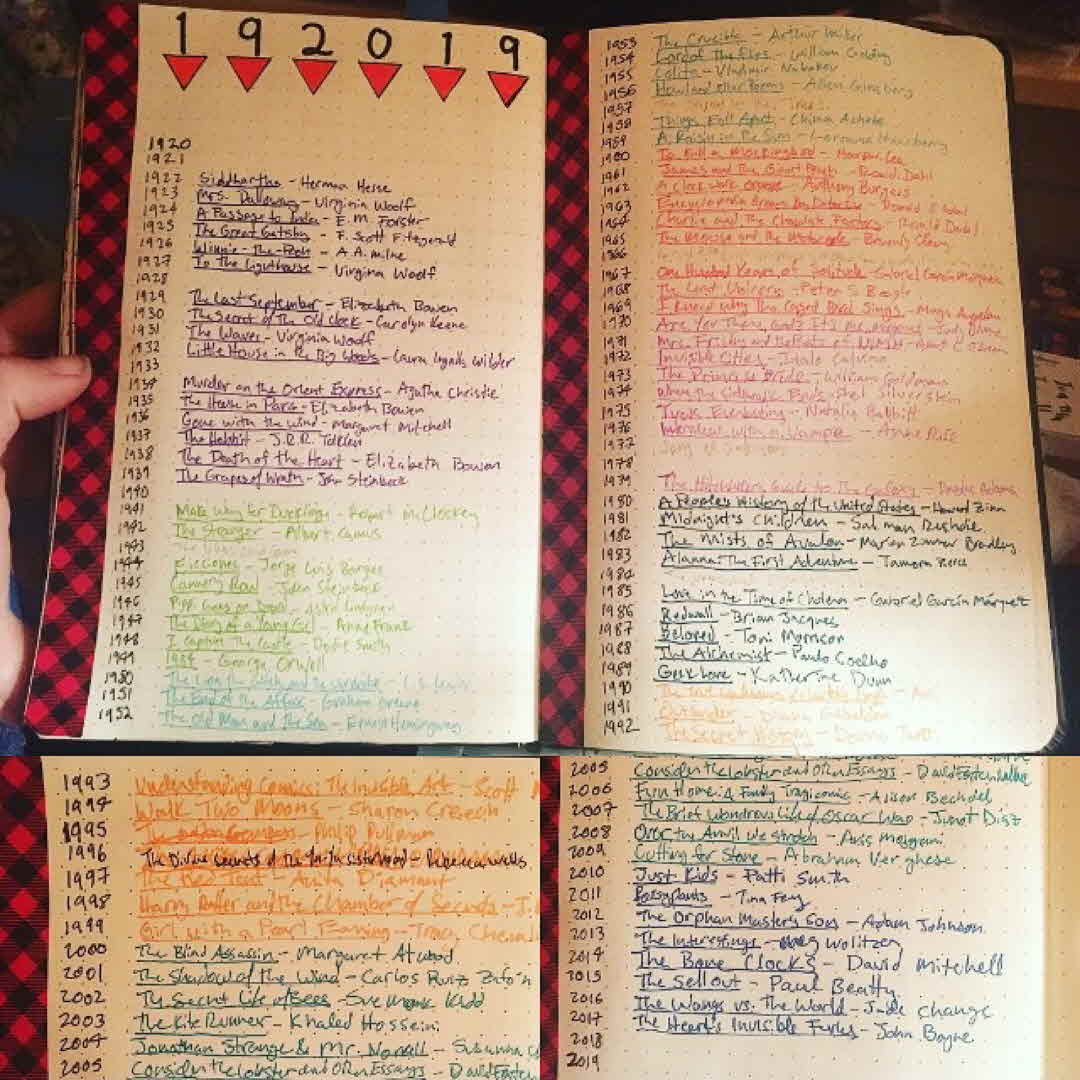 1 9 2 0 1 9
1920
1921
1922 Siddhartha - Herman Hesse
1923 Mrs. Dalloway - Virginia Woolf
1924 A Passage to India - E.M. Forster
1925 The Great Gatsby - F. Scott Fitzgerald
1926 Winnie-The-Pooh - A.A. Milne
1927 To The Lighthouse - Virginia Woolf
1928
1929 The Last September - Elizabeth Bowen
1930 The Secret of The Old Clock - Carolyn Keene
1931 The Waves - Virginia Woolf
1932 Little House in the Big Woods - Laura Ingalls Wilder
1933
1934 Murder on the Orient Express - Agatha Christie
1935 The House in Paris - Elizabeth Bowen
1936 Gone with the Wind - Margaret Mitchell
1937 The Hobbit - J.R.R. Tolkien
1938 The Death of the Heart - Elizabeth Bowen
1939 The Grapes of Wrath - John Steinbeck
1940
1941 Make Way for Ducklings - Robert McCloskey
1942 The Stranger - Albert Camus
1943
1944 Ficciones - Jorge Luis Borges
1945 Cannery Row - John Steinbeck
1946 Pippi Goes on Board - Astrid Lindgren
1947 The Diary of a Young Girl - Anne Frank
1948 I Capture the Castle - Dodie Smith
1949 1984 - George Orwell
1950 The Lion the Witch and the Wardrobe - C.S. Lewis
1951 The End of the Affair - Graham Greene
1952 The Old Man and the Sea - Ernest Hemingway
1953 The Crucible - Arthur Miller
1954 Lord of The Flies - William Golding
1955 Lolita - Vladimir Nabokov
1956 Howl and other Poems - Allen Ginsberg
1957
1958 Things Fall Apart - China Achebe
1959 A Raisin in the Sun - Lorraine Hansberry
1960 To Kill a Mockingbird - Harper Lee
1961 James and The Giant Peach - Roald Dahl
1962 A Clock work orange - Anthony Burgess
1963 Encyclopedia Brown Boy Detective - Donald J. Sobol
1964 Charlie and The Chocolate Factory - Roald Dahl
1965 The Mouse and the Motorcycle - Beverly Cleary
1966
1967 One Hundred Years of Solitude - Gabriel Garcia Marquez
1968 The Last Unicorn - Peter S Beagle
1969 I Know Why The Caged Bird Sings - Maya Angelou
1970 Are You There, God? It's me, Margaret - Judy Blume
1971 Mrs. Frisby and the Rats of NIMH - Robert C. O'Brien
1972 Invisible Cities - Italo Calvino
1973 The Princess Bride - William Goldman
1974 Where the Sidewalk Ends - Shel Silverstein
1975 Tuck Everlasting - Natalie Babbitt
1976 Interview with a Vampire - Anne Rice
1977 Song of Solomon
1978
1979 The Hitchhiker's Guide to The Galaxy - Douglas Adams
1980 A People's History of the United States - Howard Zinn
1981 Midnight's Children - Salman Rushdie
1982 The Mists of Avalon - Marion Zimmer Bradley
1983 Alanna: The First Adventure - Tamora Pierce
1984
1985 Love in the Time of Cholera - Gabriel García Márquez
1986 Redwall - Brian Jacques
1987 Beloved - Toni Morrison
1988 The Alchemist - Paulo Coelho
1989 Geek Love - Katherine Dunn
1990
1991 Outlander - Diana Gabaldon
1992 The Secret History - Donna Tartt
1993 Understanding Comics The Invisible Art - Scott
1994 Walk Two Moons - Sharon Creech
1995 The Golden Compass - Philip Pullman
1996 The Divine Secrets of the Ya-Ya Sisterhood - Rebecca Wells
1997 The Red Tent - Anita Diamant
1998 Harry Potter and the Chamber of Secrets - J.
1999 Girl with a Pearl Earring - Tracy Cheval
2000 The Blind Assassin - Margaret Atwood
2001 The Shadow of the Wind - Carlos Ruiz Zafón
2002 The Secret Life of Bees - Sue Monk Kidd
2003 The Kite Runner - Khaled Hosseini
2004 Jonathan Strange & Mr. Norrell - Susanna C
2005 Consider the Lobster and Other Essays - David Foster
2005 Consider the Lobster and Other Essays - David Foster Wallace
2006 Fun Home: A Family Tragicomic - Alison Bechdel
2007 The Brief Wondrous Life of Oscar Wao - Junot Diaz
2008 Over the Anvil We Stretch - Anis Mojgani
2009 Cutting for Stone - Abraham Verghese
2010 Just Kids - Patti Smith
2011 Bossypants - Tina Fey
2012 The Orphan Master's Son - Adam Johnson
2013 The Interestings - Meg Wolitzer
2014 The Bone Clocks - David Mitchell
2015 The Sellout - Paul Beatty
2016 The Wangs vs. The World - Jade Chang
2017 The Heart's Invisible Furies - John Boyne
2018
2019